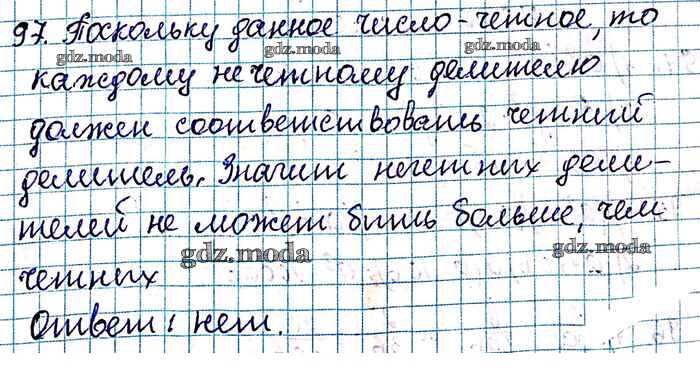 97. Поскольку данное число - четное, то
gdz.moda gdz.moda gdz.moda
каждому нечетному делителю
должен соответствовать четний
делитель. Значит нечетних дели-
телей не может бить больше, чем
gdz.moda gdz.moda
четних
Ответ: нет.